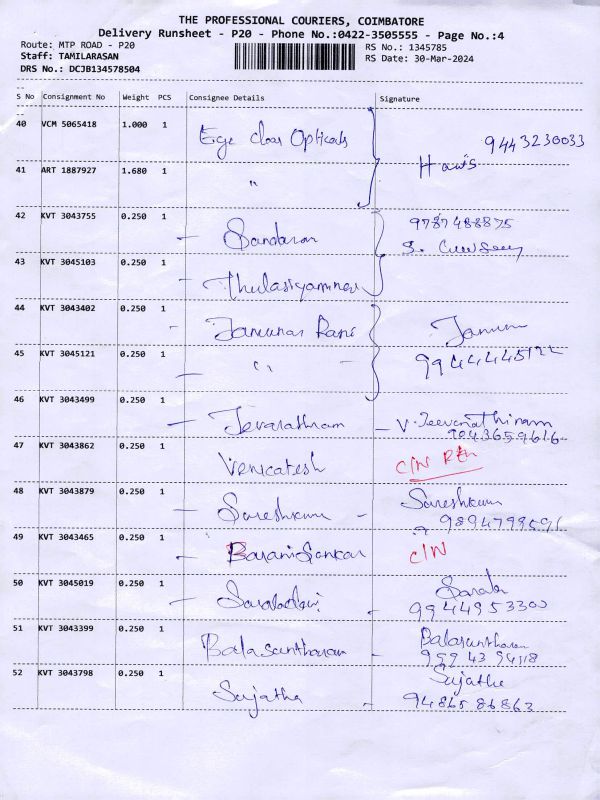 THE PROFESSIONAL COURIERS, COIMBATORE
Delivery Runsheet - P20 - Phone No.:0422-3505555 - Page No.:4
Route: MTP ROAD - P20 RS No.: 1345785
Staff: TAMILARASAN RS Date: 30-Mar-2024
DRS No.: DCJB134578504
S No Consignment No Weight PCS Consignee Details Signature
40 VCM 5065418 1.000 1 Eye Opticals 9443230033
41 ART 1887927 1.680 1 "
42 KVT 3043755 0.250 1 Sundaram 9787488875
43 KVT 3045103 0.250 1 Thulasiyammal
44 KVT 3043402 0.250 1 Jamuna Rani
45 KVT 3045121 0.250 1 "
46 KVT 3043499 0.250 1 Jevarathnam V. Jeevarathinam
47 KVT 3043862 0.250 1 Venkatesh C/N
48 KVT 3043879 0.250 1 Sureshkumar Sureshkumar
49 KVT 3043465 0.250 1 Barani Sankar C/N
50 KVT 3045019 0.250 1 Saraladevi Sarala
9944953300
51 KVT 3043399 0.250 1 Balasantharam Balasantharam
52 KVT 3043798 0.250 1 Sujatha Sujatha
9486586863